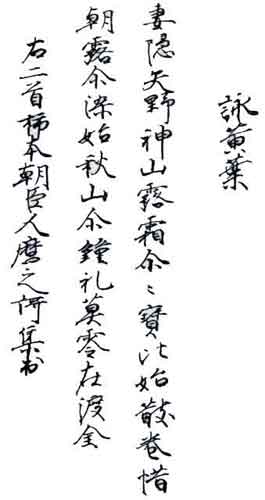 詠黄葉
妻隠矢野神山露霜尒〻寶比始散巻惜
朝露尒染始秋山尒鍾礼莫零在渡金
右二首柿本朝臣人麿之謌集出